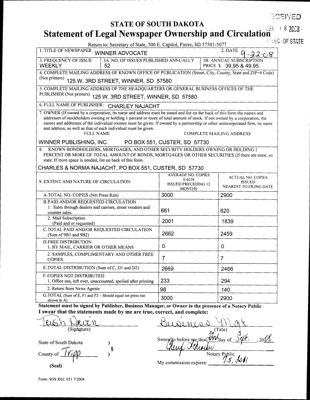 RECEIVED
STATE OF SOUTH DAKOTA
Statement of Legal Newspaper Ownership and Circulation
SEC. OF STATE
Return to: Secretary of State, 500 E. Capitol, Pierre, SD 57501-5077
1. TITLE OF NEWSPAPER WINNER ADVOCATE
2. DATE 9-22-08
3. FREQUENCY OF ISSUE WEEKLY
3A. NO. OF ISSUES PUBLISHED ANNUALLY 52
3B. ANNUAL SUBSCRIPTION PRICE $ 39.95 & 49.95
4. COMPLETE MAILING ADDRESS OF KNOWN OFFICE OF PUBLICATION (Street, City, County, State and ZIP+4 Code)
(Not printers) 125 W. 3RD STREET, WINNER, SD 57580
5. COMPLETE MAILING ADDRESS OF THE HEADQUARTERS OR GENERAL BUSINESS OFFICES OF THE
PUBLISHER (Not printers) 125 W. 3RD STREET, WINNER, SD 57580
6. FULL NAME OF PUBLISHER: CHARLEY NAJACHT
7. OWNER (If owned by a corporation, its name and address must be stated and list on the back of this form the names and
addresses of stockholders owning or holding 1 percent or more of total amount of stock. If not owned by a corporation, the
names and addresses of the individual owners must be given. If owned by a partnership or other unincorporated firm, its name
and address, as well as that of each individual must be given.
FULL NAME COMPLETE MAILING ADDRESS
WINNER PUBLISHING, INC. PO BOX 551, CUSTER, SD 57730
8. KNOWN BONDHOLDERS, MORTGAGES, AND OTHER SECURITY HOLDERS OWNING OR HOLDING 1
PERCENT OR MORE OF TOTAL AMOUNT OF BONDS, MORTGAGES OR OTHER SECURITIES (If there are none, so
state. If more space is needed, list on back of this form.
CHARLES & NORMA NAJACHT, PO BOX 551, CUSTER, SD 57730
9. EXTENT AND NATURE OF CIRCULATION
AVERAGE NO. COPIES EACH ISSUED PRECEDING 12 MONTHS
ACTUAL NO. COPIES ISSUED NEAREST TO FILING DATE
A. TOTAL NO. COPIES (Net Press Run) 3000 2900
B. PAID AND/OR REQUESTED CIRCULATION
1. Sales through dealers and carriers, street vendors and
counter sales. 661 620
2. Mail Subscription
(Paid and or requested) 2001 1839
C. TOTAL PAID AND/OR REQUESTED CIRCULATION
(Sum of 9B1 and 9B2) 2662 2459
D. FREE DISTRIBUTION
1. BY MAIL, CARRIER OR OTHER MEANS 0 0
2. SAMPLES, COMPLIMENTARY AND OTHER FREE
COPIES 7 7
E. TOTAL DISTRIBUTION (Sum of C, D1 and D2) 2669 2466
F. COPIES NOT DISTRIBUTED
1. Office use, left over, unaccounted, spoiled after printing 233 294
2. Return from News Agents 98 140
G. TOTAL (Sum of E, F1 and F2 - Should equal net press run
shown in A) 3000 2900
Statement must be signed by Publisher, Business Manager, or Owner in the presence of a Notary Public
I swear that the statements made by me are true, correct, and complete:
Business Mgr
(Signature) (Title)
State of South Dakota )
County of Tripp )
(Seal)
Sworn to before me this day of Sept. 2008
Notary Public
My commission expires:
Form: SOS REC 051 7/2004